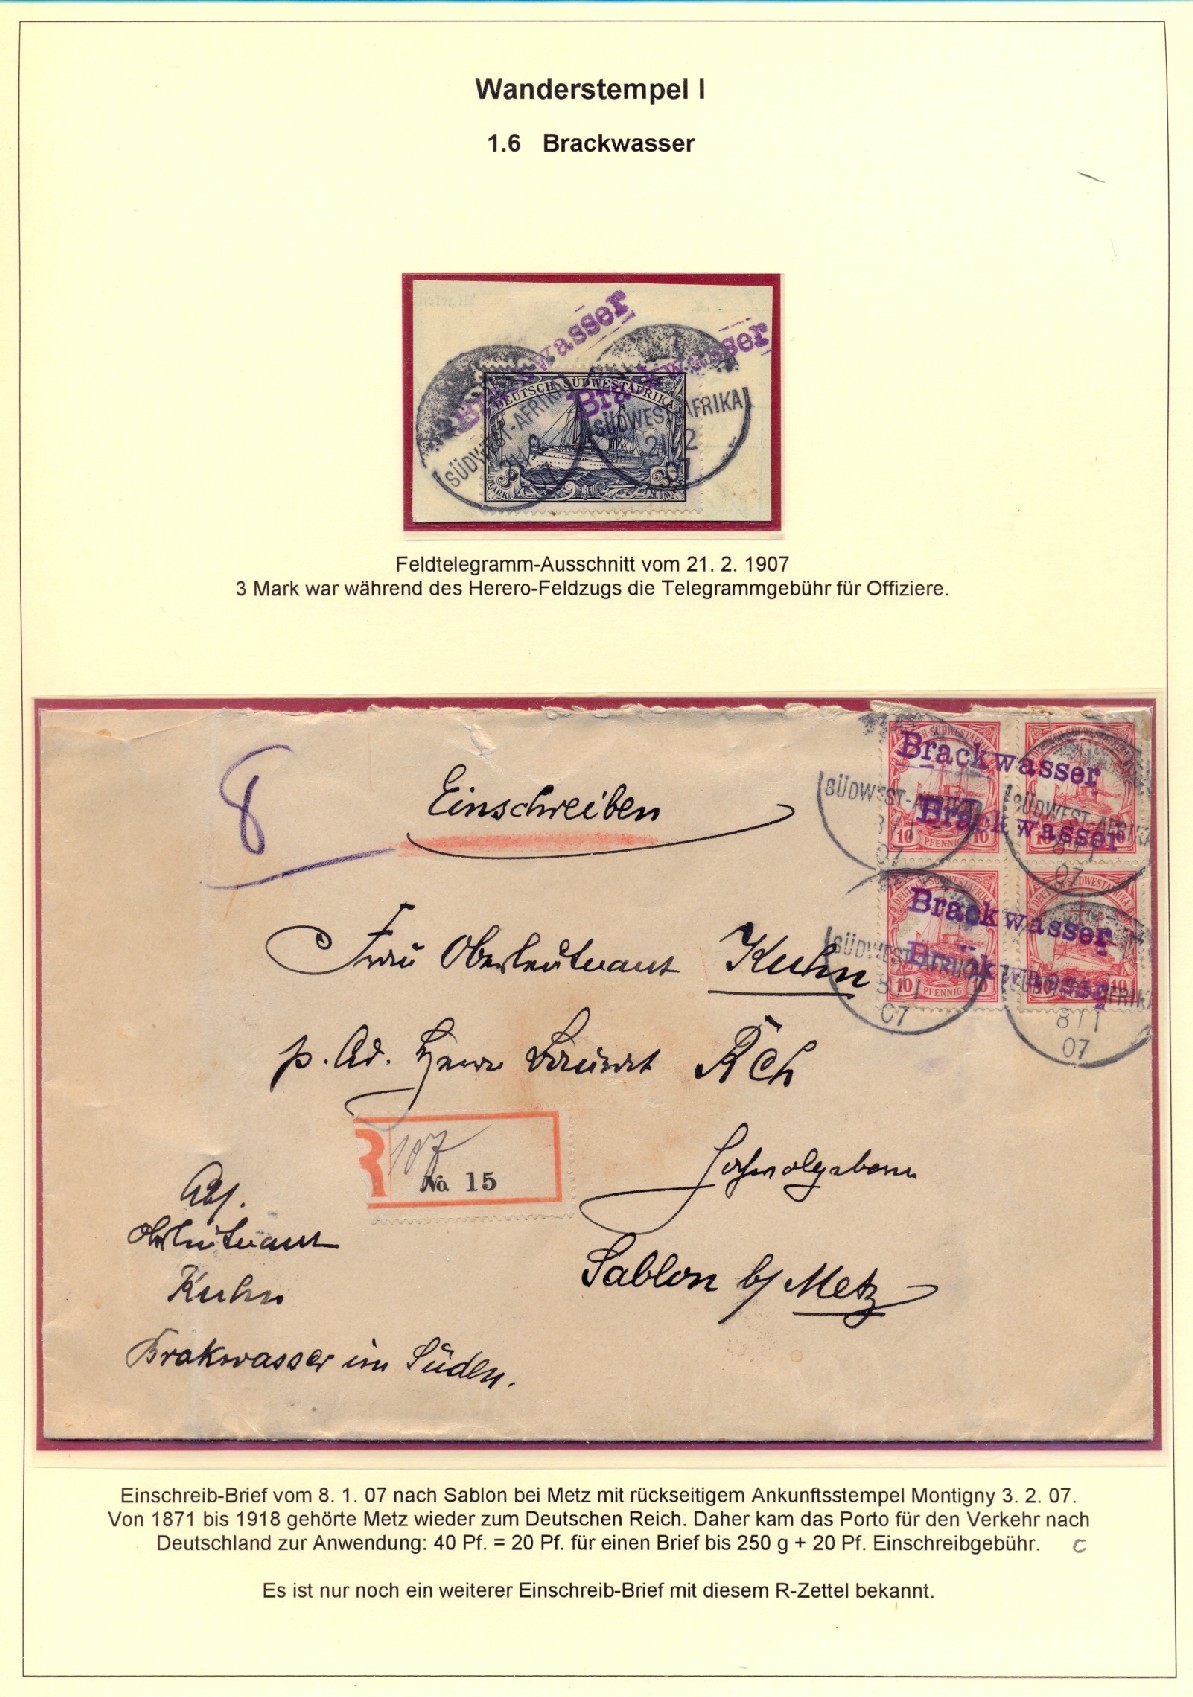 Wanderstempel I
1.6 Brackwasser
Brackwasser
Brackwasser
DEUTSCH-SÜDWESTAFRIKA
SÜDWEST-AFRIKA
SÜDWEST-AFRIKA
21/2
07
3 3
Feldtelegramm-Ausschnitt vom 21. 2. 1907
3 Mark war während des Herero-Feldzugs die Telegrammgebühr für Offiziere.
8
Einschreiben
Brackwasser
Brackwasser
SÜDWEST-AFRIKA
8/1
07
SÜDWEST-AFRIKA
8/1
07
10 PFENNIG 10
Brackwasser
Brackwasser
SÜDWEST-AFRIKA
8/1
07
SÜDWEST-AFRIKA
8/1
07
10 PFENNIG 10
Frau Oberleutnant Kuhn
p. Ad. Herrn
R
107
No 15
Sablon b/ Metz
Abs.
Oberleutnant
Kuhn
Brakwasser im Süden.
Einschreib-Brief vom 8. 1. 07 nach Sablon bei Metz mit rückseitigem Ankunftsstempel Montigny 3. 2. 07.
Von 1871 bis 1918 gehörte Metz wieder zum Deutschen Reich. Daher kam das Porto für den Verkehr nach
Deutschland zur Anwendung: 40 Pf. = 20 Pf. für einen Brief bis 250 g + 20 Pf. Einschreibgebühr. C
Es ist nur noch ein weiterer Einschreib-Brief mit diesem R-Zettel bekannt.